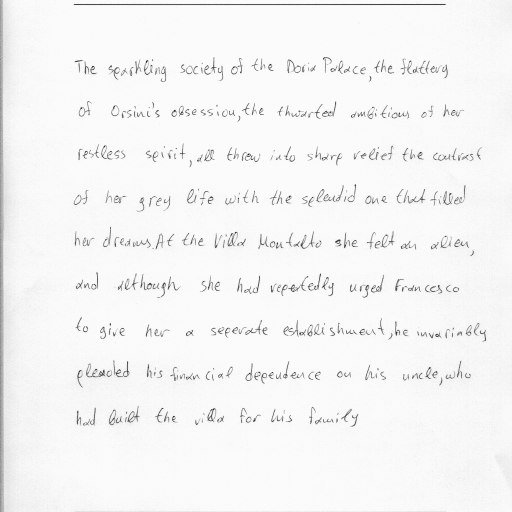 The sparkling society of the Doria Palace, the flattery
of Orsini's obsession, the thwarted ambitions of her
restless spirit, all threw into sharp relief the contrast
of her grey life with the splendid one that filled
her dreams. At the Villa Montalto she felt an alien,
and although she had repertedly urged Francesco
to give her a seperate establishment, he invariably
pleaded his financial dependence on his uncle, who
had built the villa for his family